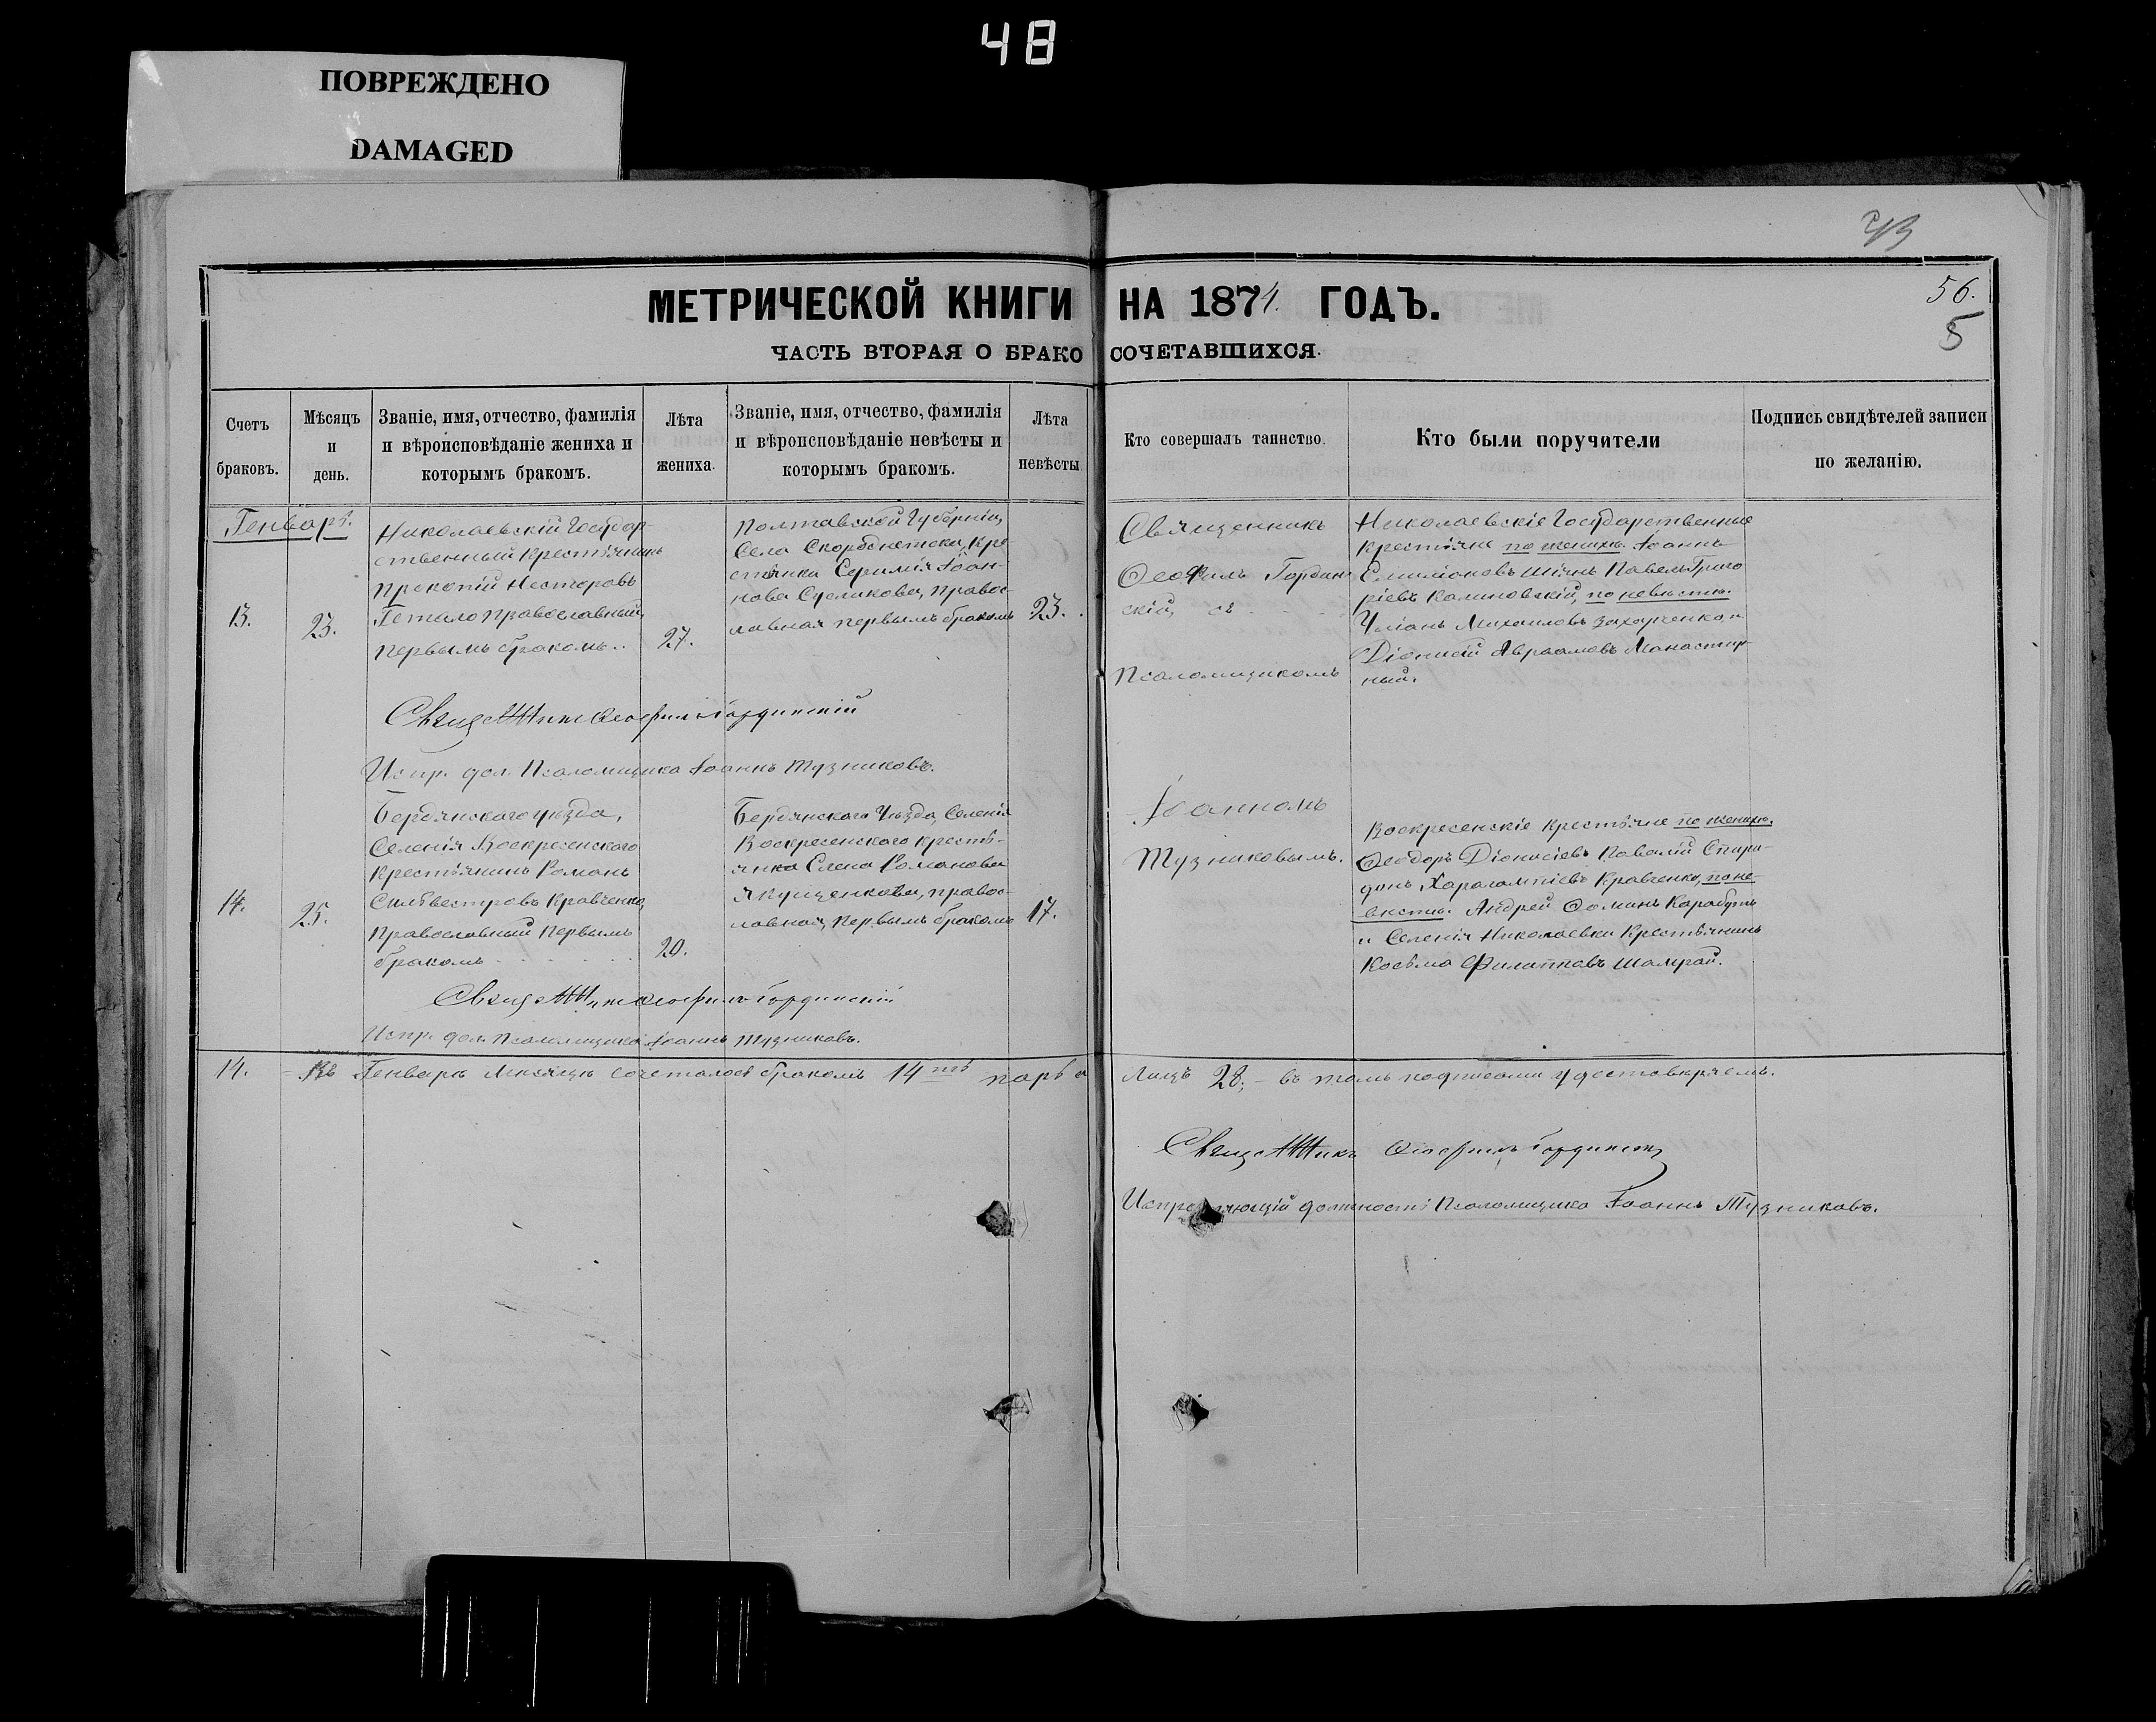 48
ПОВРЕЖДЕНО
DAMAGED
43
56.
5
МЕТРИЧЕСКОЙ КНИГИ НА 1874. ГОДЪ.
ЧАСТЬ ВТОРАЯ О БРАКОСОЧЕТАВШИХСЯ.
Счетъ
браковъ.
Мѣсяцъ
и
день.
Званіе, имя, отчество, фамилія
и вѣроисповѣданіе жениха и
которымъ бракомъ.
Лѣта
жениха.
Званіе, имя, отчество, фамилія
и вѣроисповѣданіе невѣсты и
которымъ бракомъ.
Лѣта
невѣсты
Кто совершалъ таинство.
Кто были поручители
Подпись свидѣтелей записи
по желанію.
Генварь.
13.
23.
Николаевскій Государ-
ственный крестьянинъ
Прокопій Несторовъ
Гетало православный,
первымъ бракомъ..
27.
Полтавской Губерніи,
Села Скоробчетски, кре
стьянка Іоан-
нова правос-
лавная первымъ бракомъ
23.
Священникъ
Ѳеофилъ Гордин
скій, съ
Псаломщикомъ
Іоанномъ
Тузниковымъ.
Николаевскіе Государственные
крестьяне по женихѣ. Іоаннъ
Емиліановъ Павелъ Григо
ріевъ Калиновскій, по невѣстѣ.
Уліанъ Михаиловъ Захарченко и
Діонисій Авраамовъ Монастыр-
ный.
Священникъ Ѳеофилъ Гординскій
Испр. дол. Псаломщика Іоаннъ Тузниковъ.
14.
25.
Бердянскаго уѣзда,
Селенія Воскресенскаго
крестьянинъ Романъ
Сильвестровъ Кравченко,
православный первымъ
бракомъ
20.
Бердянскаго Уѣзда, Селенія
Воскресенскаго крестья-
нка Елена Романова
Якущенкова, правос-
лавная, первымъ бракомъ
17.
Воскресенскіе крестьяне по женихѣ.
Ѳеодоръ Діонисіевъ Спири-
донъ Харалампіевъ Кравченко, по не-
вѣстѣ. Андрей Ѳоминъ Карабутъ
и Селенія Николаевки Крестьянинъ
Косьма Филипповъ Шамрай.
Священникъ Ѳеофилъ Гординскій
Испр. дол. Псаломщика Іоаннъ Тузниковъ.
14. Въ Генварѣ Мѣсяцѣ сочеталось бракомъ 14ть паръ а Лицъ 28; – въ томъ подписомъ удостовѣряемъ.
Священникъ Ѳеофилъ Гординскій
должность Псаломщика Іоаннъ Тузниковъ.